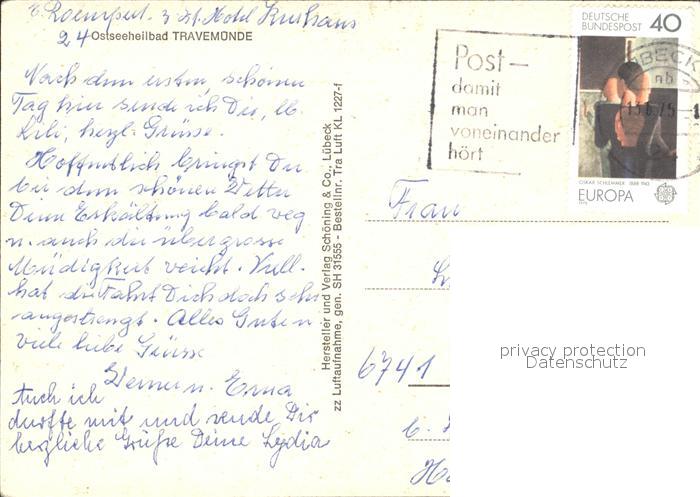 z. Zt. Hotel Kurhaus
24 Ostseeheilbad TRAVEMÜNDE
Nach dem ersten schönen
Tag hier sende ich Dir, lb.
Lili, herzl. Grüsse.
Hoffentlich bringst Du
bei dem schönen Wetter
Deine Erkältung bald weg
u. auch die übergrosse
Müdigkeit weicht. Viell.
hat die Fahrt Dich doch sehr
angestrengt. Alles Gute u.
viele liebe Grüsse
Werner u. Erna
Auch ich
durfte mit und sende Dir
herzliche Grüße Deine Lydia
Hersteller und Verlag Schöning & Co., Lübeck
zz Luftaufnahme, gen. SH 31555 - Bestellnr. Tra Luft KL 1227-f
Post-
damit
man
voneinander
hört
DEUTSCHE
BUNDESPOST 40
OSKAR SCHLEMMER 1888-1943
EUROPA
Frau
6741
privacy protection
Datenschutz